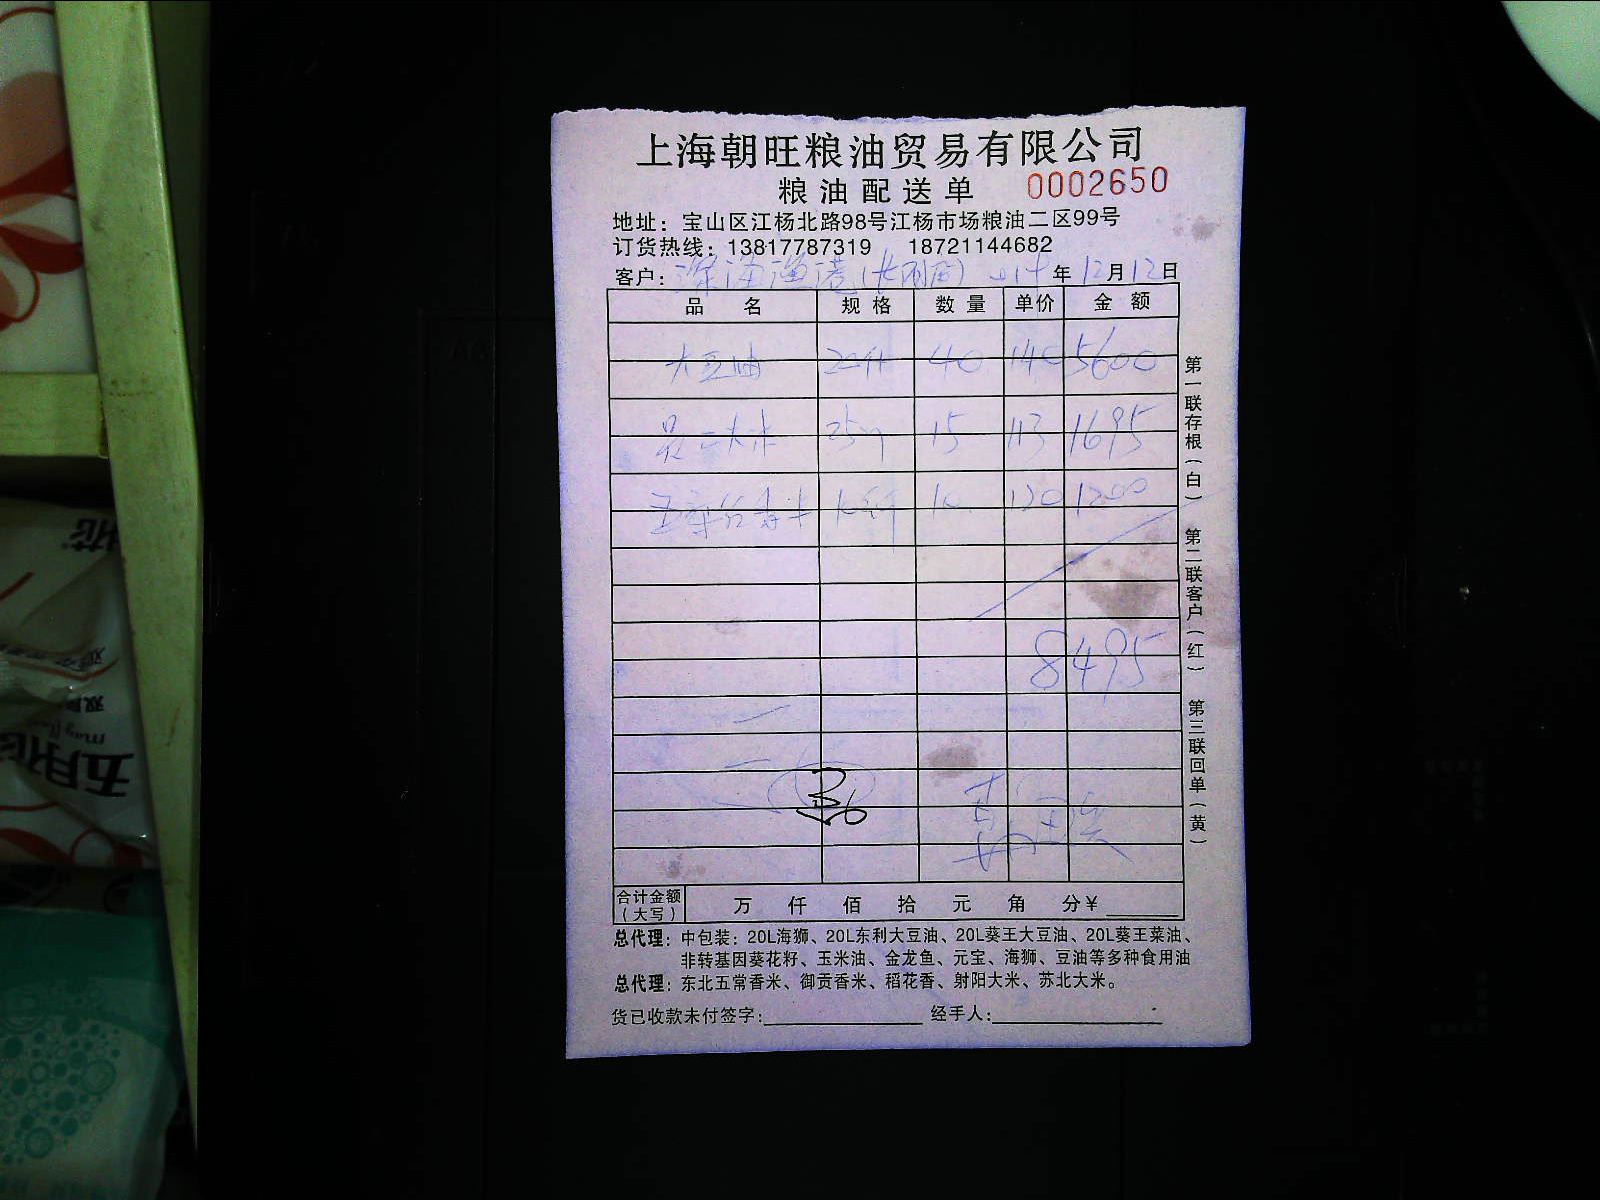 上海朝旺粮油贸易有限公司
粮油配送单 0002650
地址：宝山区江杨北路98号江杨市场粮油二区99号
订货热线：13817787319 18721144682
客户：深海渔港 年12月12日
品名 规格 数量 单价 金额
大豆油 20升 40 140 5600
大米 25 15 113 1695
10 120 1200
8495
合计金额（大写） 万 仟 佰 拾 元 角 分¥
总代理：中包装：20L海狮、20L东利大豆油、20L葵王大豆油、20L葵王菜油、
非转基因葵花籽、玉米油、金龙鱼、元宝、海狮、豆油等多种食用油
总代理：东北五常香米、御贡香米、稻花香、射阳大米、苏北大米。
货已收款未付签字： 经手人：
第一联存根（白） 第二联客户（红） 第三联回单（黄）
五月花
May
双